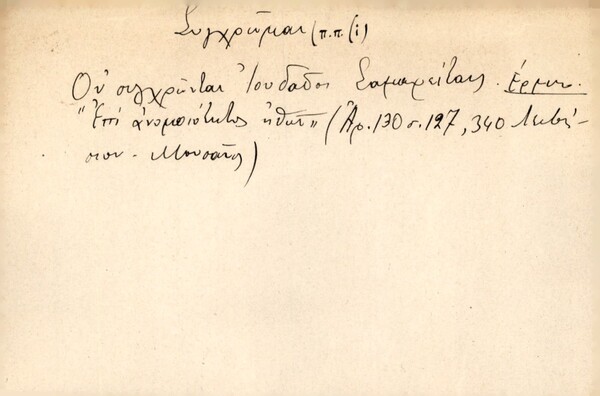 Συγχρῶμαι (π.π. (i)
Οὐ συγχρῶνται Ἰουδαῖοι Σαμαρείταις. Ἑρμην.
"Ἐπὶ ἀνομοιότητος ἠθῶν" (Ἀρ. 130 σ. 127, 340 Λεξί-